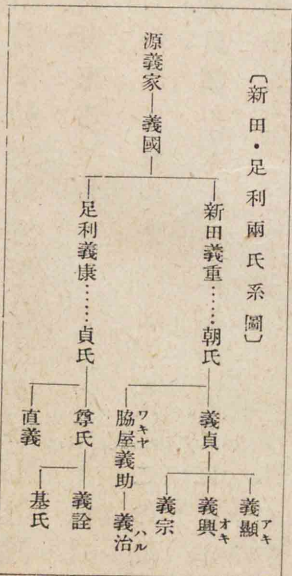 〔新田・足利兩氏系圖〕
源義家―義國
新田義重……朝氏
義貞
義顯
アキ
義興
オキ
義宗
脇屋義助―義治
ワキヤ
ハル
足利義康……貞氏
尊氏
義詮
基氏
直義